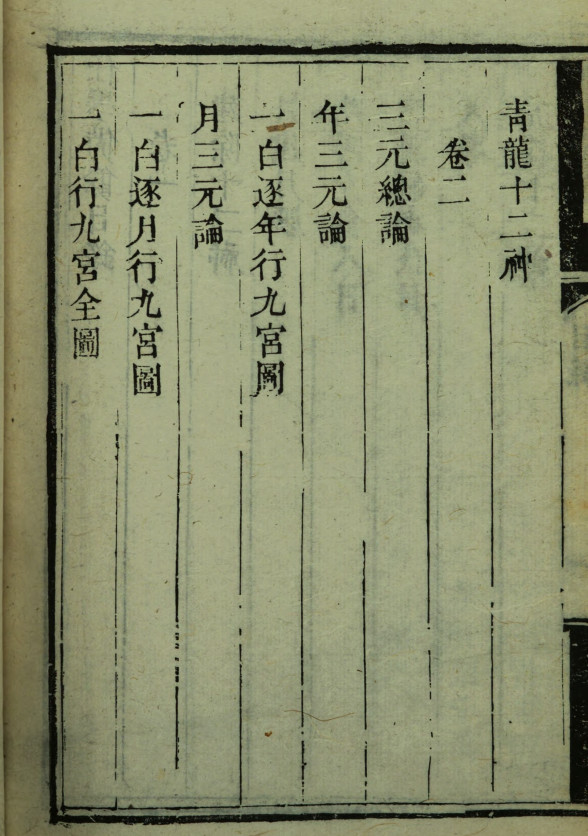 青龍十二神
卷二
三元總論
年三元論
一白逐年行九宮圖
月三元論
一白逐月行九宮圖
一白行九宮全圖